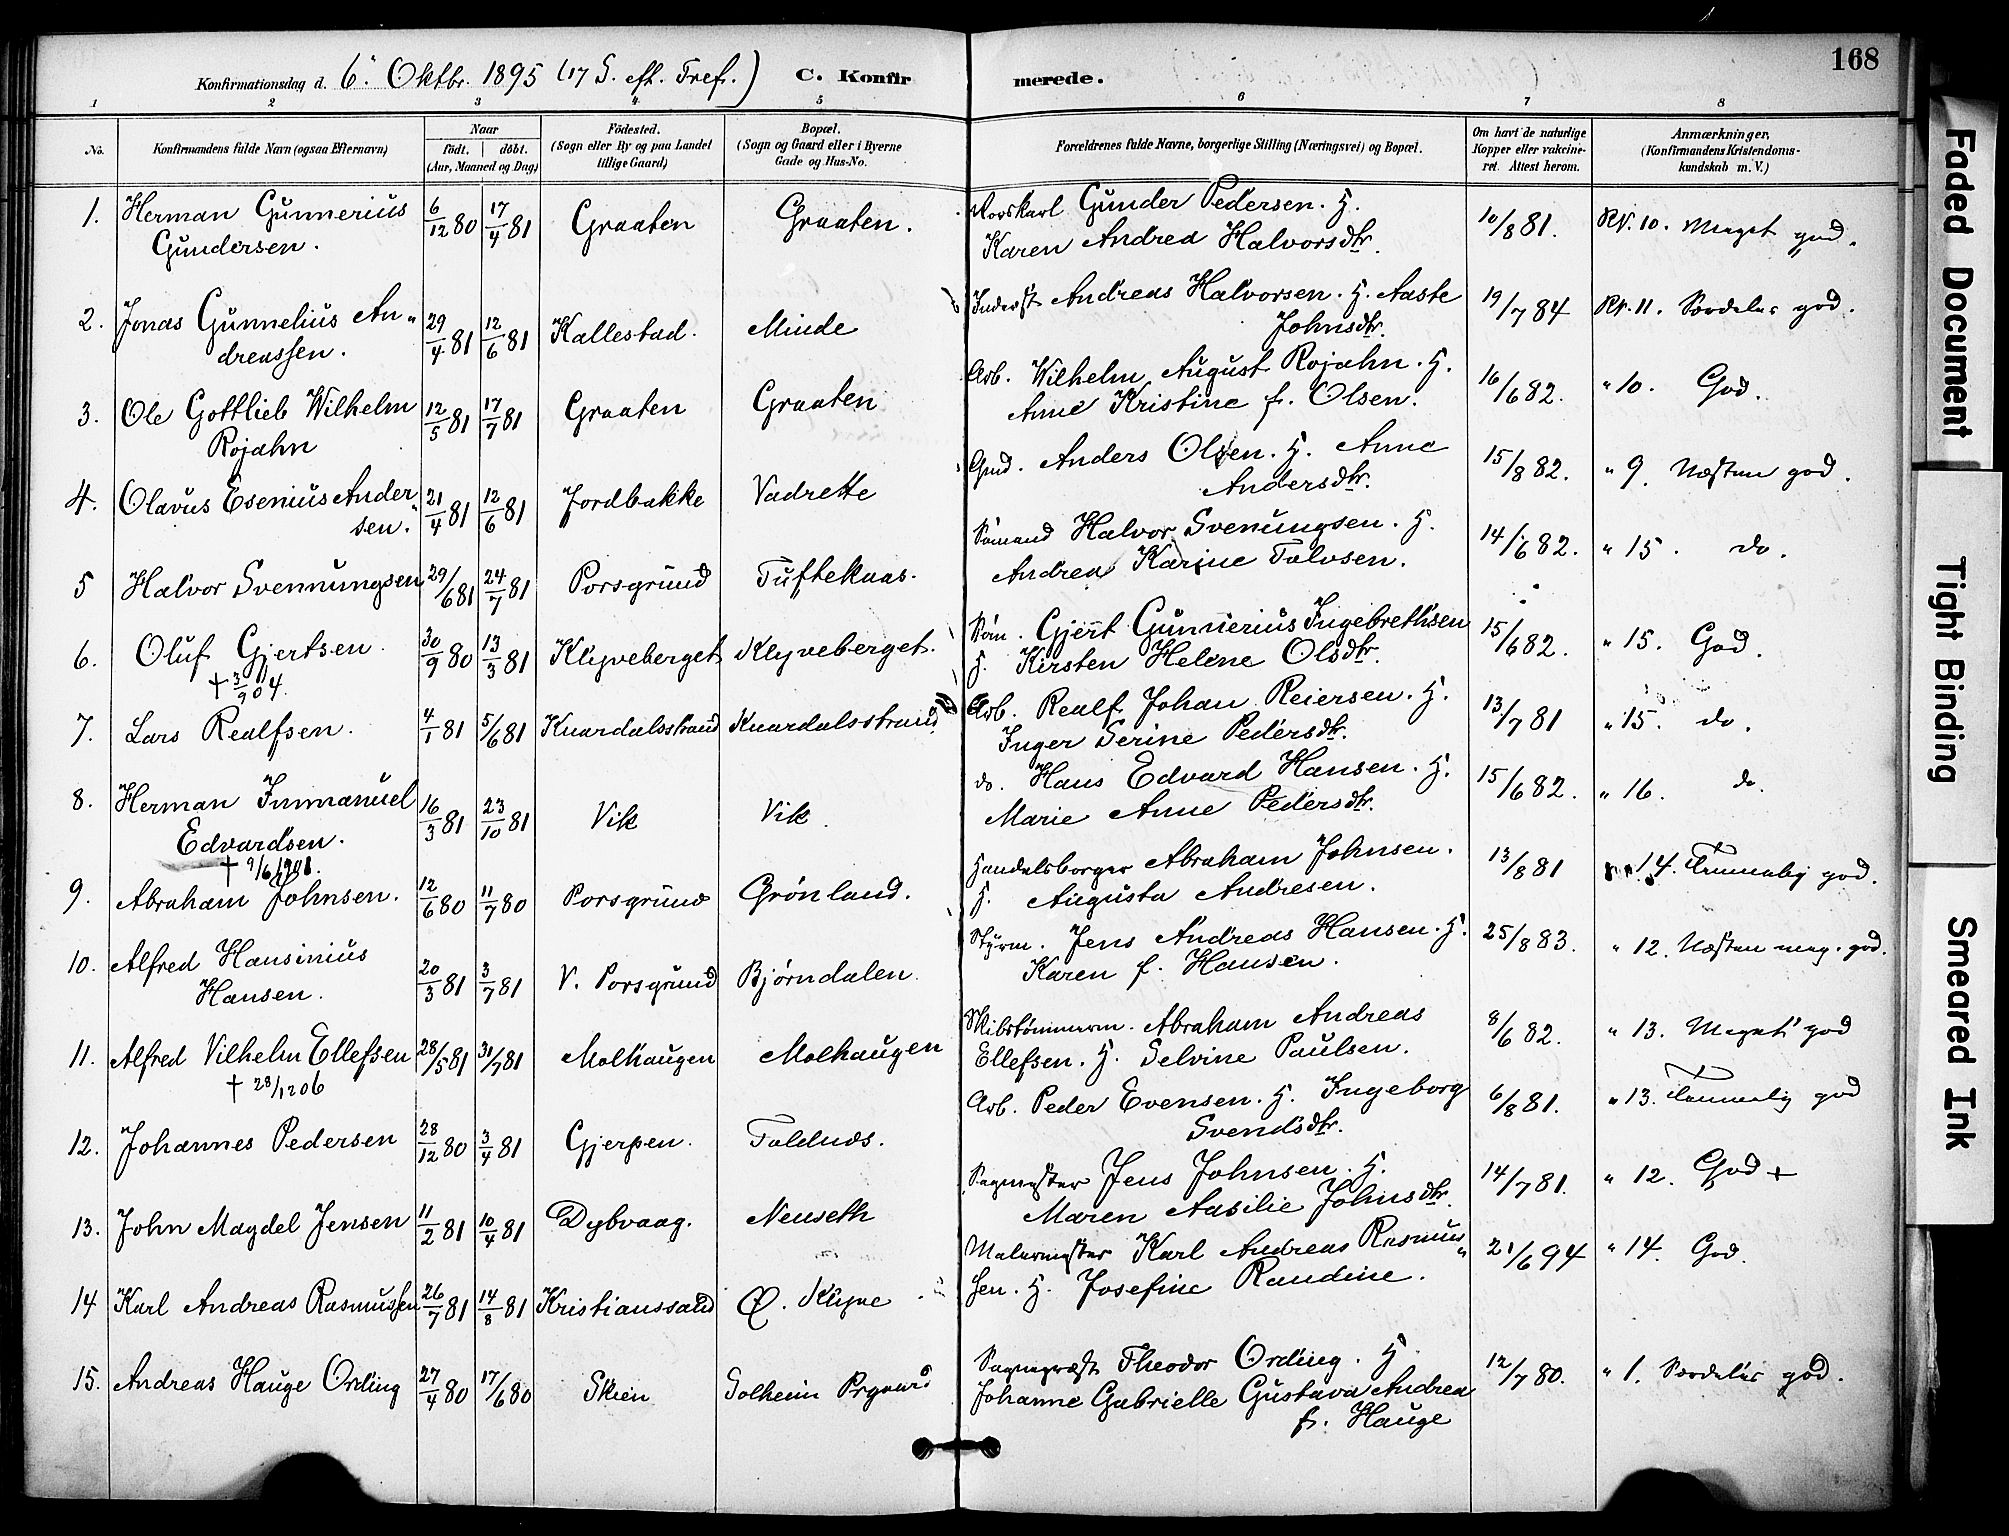 168
Konfirmationsdag d. 6' Oktbr. 1895 (17 S. eft. Tref.) C. Konfirmerede.
1 2 3 4 5 6 7 8
No. Konfirmandens fulde Navn (ogsaa Efternavn) Naar født. døbt. (Aar, Maaned og Dag) Fødested. (Sogn eller By og paa Landet tillige Gaard) Bopæl. (Sogn og Gaard eller i Byerne Gade og Hus-No. Forældrenes fulde Navne, borgerlige Stilling (Næringsvei) og Bopæl. Om havt de naturlige Kopper eller vakcineret. Attest herom. Anmærkninger, (Konfirmandens Kristendomskundskab m. V.)
1. Herman Gunnerius 6/12 80 17/4 81 Graaten Graaten. Gunder Pedersen. H. 10/8 81. Nr. 10. Meget god.
Gundersen. Karen Andrea Halvorsdtr.
2. Jonas Gunnelius An„ 29/4 81 12/6 81 Kallestad. Minde Inderst Andreas Halvorsen. H. Aaste 19/7 84 Nr. 11. Særdeles god.
dreassen. Johnsdtr.
3. Ole Gottlieb Wilhelm 12/5 81 17/7 81 Graaten Graaten Arb. Wilhelm August Rojahn. H. 16/6 82. " 10. God.
Rojahn Anne Kristine f. Olsen.
4. Olavus Esenius Ander 21/4 81 12/6 81 Jordbakke Vadrette Gmd. Anders Olsen. H. Anne 15/8 82. " 9. Næsten god.
sen." Andersdtr.
5 Halvor Svennungsen 29/6 81 24/7 81 Porsgrund Tuftekaas. Sømand Halvor Svenungsen. H. 14/6 82. " 15. do.
Andrea Karine Talvsen.
6. Oluf Gjertsen 30/9 80 13/3 81 Klyveberget Klyveberget. Søm. Gjert Gunnerius Ingebrethsen 15/6 82. " 15. God.
† 3/9 04. H. Kirsten Helene Olsdtr.
7. Lars Realfsen. 4/1 81 5/6 81 Knardalsstrand Knardalsstrand Arb. Realf Johan Reiersen. H. 13/7 81 " 15. do.
Inger Serine Pedersdtr.
8. Herman Immanuel 16/3 81 23/10 81 Vik Vik. do. Hans Edvard Hansen. H. 15/6 82. " 16. do.
Edvardsen. Marie Anne Pedersdtr.
† 9/6 1901.
9. Abraham Johnsen. 12/6 80 11/7 80 Porsgrund Grønland. Handelsborger Abraham Johnsen. 13/8 81 14. Temmelig god.
H. Augusta Andresen.
10. Alfred Hansinius 20/3 81 3/7 81 V. Porsgrund Bjørndalen. Styrm. Jens Andreas Hansen. H. 25/8 83. " 12. Næsten meg. god.
Hansen. Karen f. Hansen.
11. Alfred Vilhelm Ellefsen 28/5 81 31/7 81 Molhaugen Molhaugen Skibstømmerm. Abraham Andreas 8/6 82. " 13. Meget god
† 28/12 06 Ellefsen. H. Selvine Paulsen.
12. Johannes Pedersen 28/12 80 3/4 81 Gjerpen. Foldnæs. Arb. Peder Evensen. H. Ingeborg 6/8 81. " 13. Temmelig god
Svendsdtr.
13. John Magdel Jensen 11/2 81 10/4 81 Dybvaag. Nenseth Sagmester Jens Johnsen. H. 14/7 81. " 12. God +
Maren Aasilie Johnsdtr.
14 Karl Andreas Rasmussen 26/7 81 14/8 81 Kristianssand Ø. Klyve Malermester Karl Andreas Rasmus„ 21/6 94 " 14. God.
sen. H. Josefine Randine.
15. Andreas Hauge Ording 27/4 80 17/6 80 Skien Solheim Prgaard Sogneprest Theodor Ording. H. 12/7 80. " 1. Særdeles god.
Johanne Gabrielle Gustava Andrea
f. Hauge
Faded Document
Tight Binding
Smeared Ink